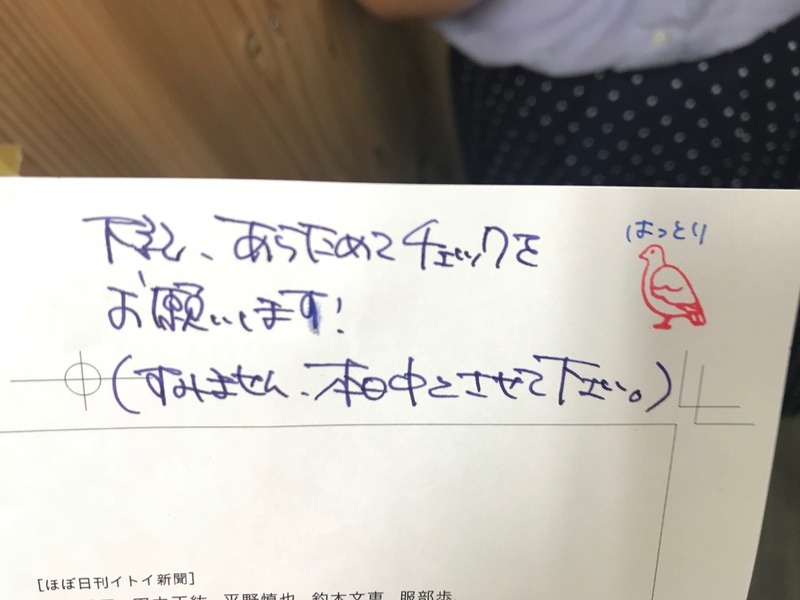 下記、あらためてチェックを
お願いします!
(すみません、本日中とさせて下さい。)
はっとり
[ほぼ日刊イトイ新聞]
平野慎也 釣木文恵 服部歩